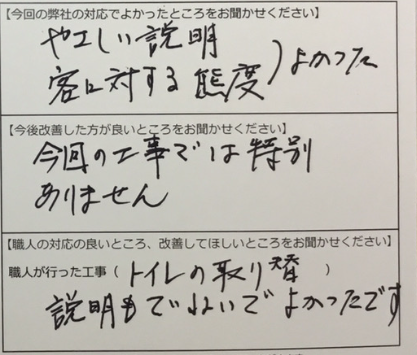 【今回の弊社の対応でよかったところをお聞かせください】
やさしい説明
客に対する態度)よかった
【今後改善した方が良いところをお聞かせください】
今回の工事では特別
ありません
【職人の対応の良いところ、改善してほしいところをお聞かせください】
職人が行った工事(トイレの取り替)
説明もていねいでよかったです